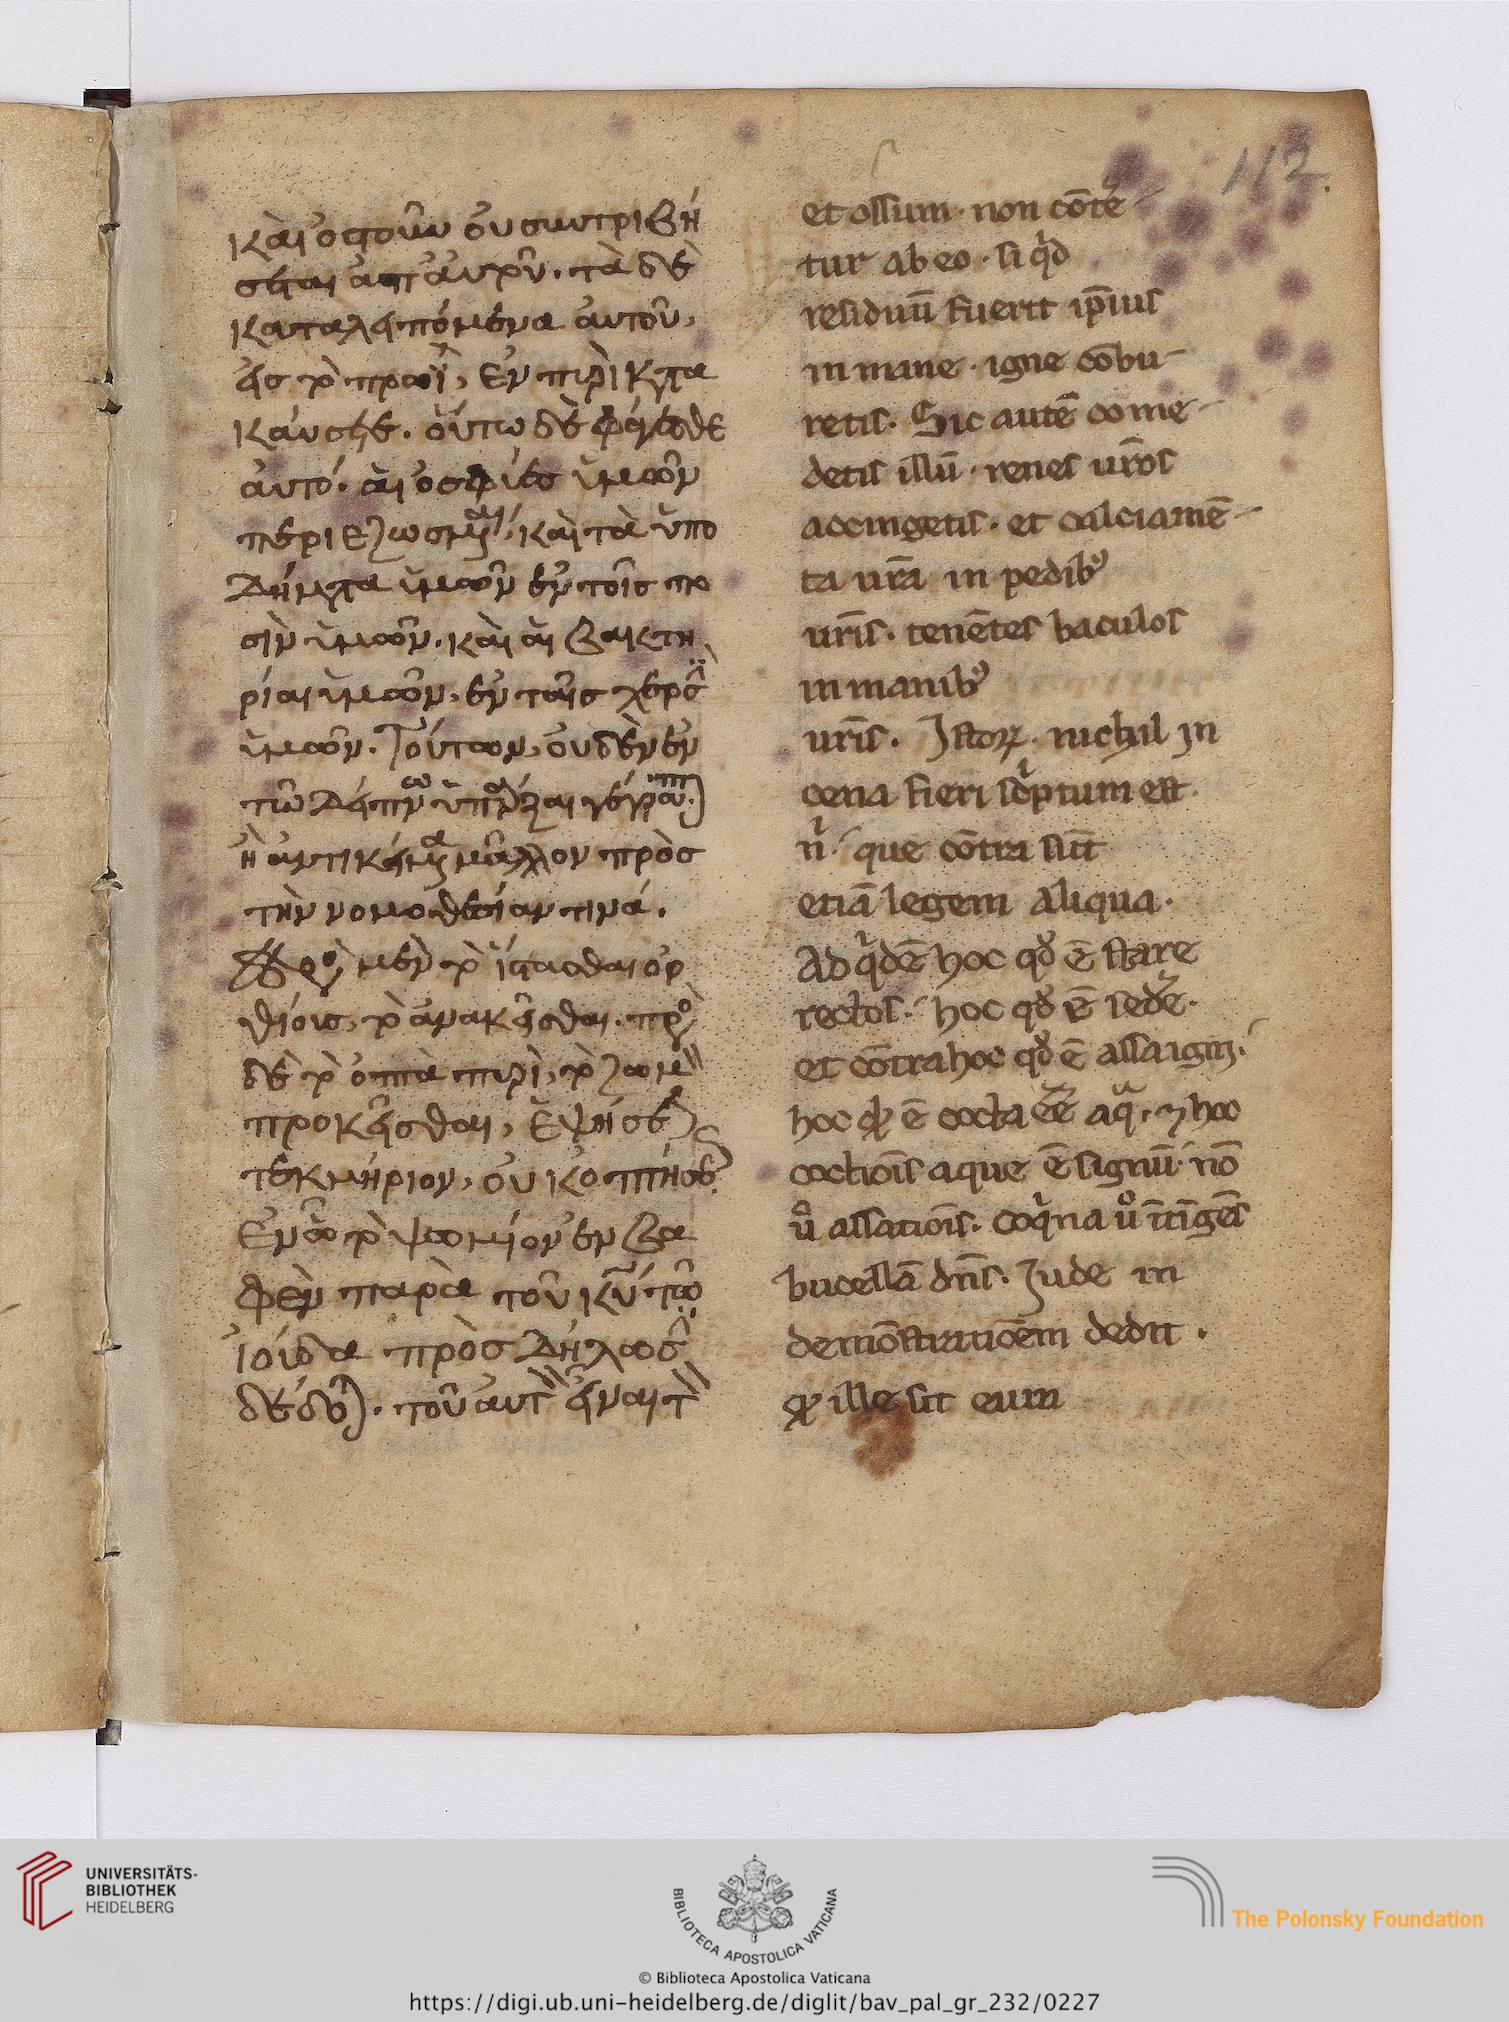 112
καὶ ὀστοῦν οὐ συντριβή
σεται ἀπ' ἀυτοῦ. τὰ δὲ
καταλειπόμενα ἀυτοῦ,
εἰς τὸ πρωΐ, ἐν πυρὶ κατα
κάυσετε. ὅυτω δὲ φάγεσθε
ἀυτό. ἁι ὀσφύες ὑμῶν
περιεζωσμέναι, καὶ τὰ ὑπο
δήματα ὑμῶν ἐν τοῖς πο
σὶν ὑμῶν. καὶ ἁι βακτη
ρίαι ὑμῶν, ἐν ταῖς χερσὶν
ὑμῶν. Τούτων, οὐδὲν ἐν
τῶ δείπνω ὑπάρξαι γέγραπται.
ἢ ἀντικείμενα μᾶλλον πρὸς
τὴν νομοθεσίαν τινά.
Πρὸς μὲν τὸ ἵστασθαι ὀρ
θίοις, τὸ ἀνακεῖσθαι. πρὸς
δὲ τὸ ὀπτὰ πυρὶ, τὸ ζωμὸν
προκεῖσθαι, ἑψήσεως
τεκμήριον, οὐκ ὀπτήσεως.
Ἐν ὧ τὸ ψωμίον ἐν βα
φὲν παρὰ τοῦ κυ τῶ
Ἰούδα πρὸς δήλωσιν
δέδοται. τοῦ ἀυτὸν εἶναι τὸν
et ossum· non cōte᷑-
tur ab eo· si qd
residuū fuerit ipīus
in mane· igne cōbu-
retis. Sic autē come-
detis illū· renes uros
accingetis. et calciamē-
ta ura in pedib᷒
uris. tenētes baculos
in manib᷒
uris. Istoꝝ· nichil in
cena fieri scptum est.
n· que cōtra sūt
etiā legem aliqua.
Ad qdē hoc qd ē stare
rectos· hoc qd ē sede.
et cōtra hoc qd ē assa igni·
hoc qd ē cocta ēē aq. ⁊ hoc
coctiōis aque ē signū· nō
uo assatiōis. Coqna uo ītīgēs
bucellā dns. Jude in
demōstratiōem dedit.
qd ille sit eum
UNIVERSITÄTS-
BIBLIOTHEK
HEIDELBERG
BIBLIOTECA APOSTOLICA VATICANA
© Biblioteca Apostolica Vaticana
The Polonsky Foundation
https://digi.ub.uni-heidelberg.de/diglit/bav_pal_gr_232/0227